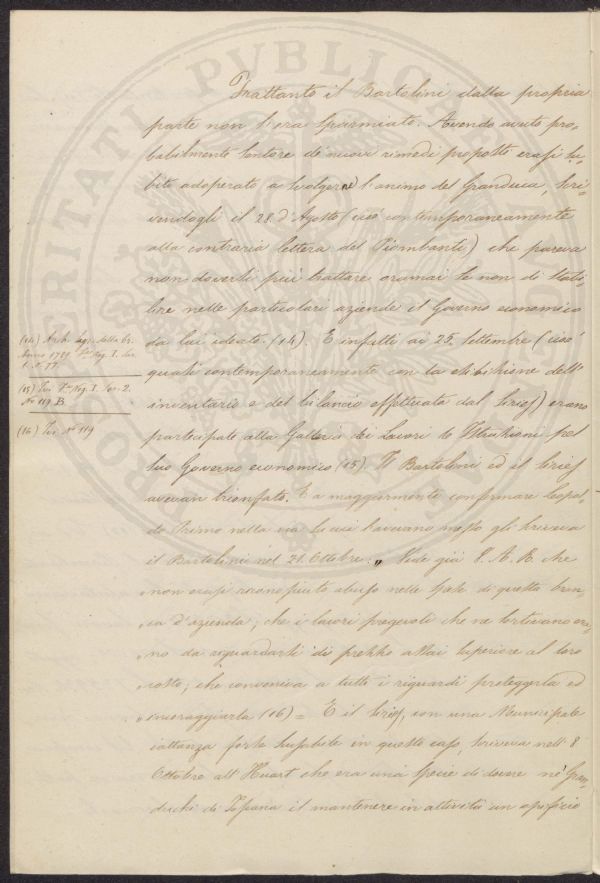 PROSPERITATI PVBLICAE AVGENDAE
Trattanto il Bartolini dalla propria
parte non s'era sparmiato. Avendo avuto pro-
babilmente sentore de' nuovi rimedi proposti erasi su-
bito adoperato a svolgere l'animo del Granduca, scri-
vendogli il 28 d'Agosto (cioè contemporaneamente
alla contraria lettera del Piombanti) che pareva
non doversi più trattare oramai se non di stabi-
lire nelle particolari aziende il Governo economico
da lui ideato (14). E infatti ai 25 Settembre (cioè
quasi contemporaneamente con la esibizione dell'
inventario e del bilancio effettuata dal Siries) erano
partecipate alla Galleria dei Lavori le Istruzioni pel
suo Governo economico (15). Il Bartolini ed il Siries
avevan trionfato. E a maggiormente confermare Leopol-
do Primo nella via su cui l'avevano messo gli scriveva
il Bartolini nel 21 Ottobre: „ Vede già S. A. R. che
„ non erasi riconosciuto abuso nelle spese di questa bran-
„ ca d'azienda; che i lavori pregevoli che ne sortivano era-
„ no da riguardarsi di prezzo assai superiore al loro
„ costo; che conveniva a tutti i riguardi proteggerla ed
„ incoraggiarla (16) = E il Siries, con una Municipale
iattanza forse scusabile in questo caso, scriveva nell' 8
Ottobre all'Huart che era una specie di dovere ne' Gran-
duchi di Toscana il mantenere in attività un opificio
(14) Arch.
Anno 1789
(15) Ivi
N.º 119 B.
(16) Ivi N.º 119